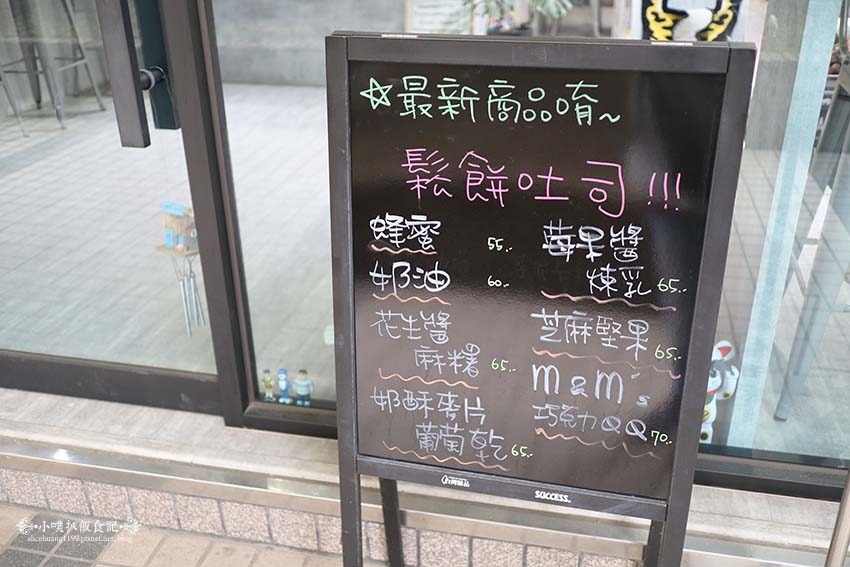 ☆最新商品唷~
鬆餅吐司!!!
蜂蜜 55.-
奶油 60.-
花生醬
麻糬 65.-
奶酥麥片
葡萄乾 65.-
莓果醬
煉乳 65.-
芝麻堅果 65.-
m&m's
巧克力QQ 70.-
SUCCESS
小噗扒飯食記
alicehuang1199.pixnet.net/blog